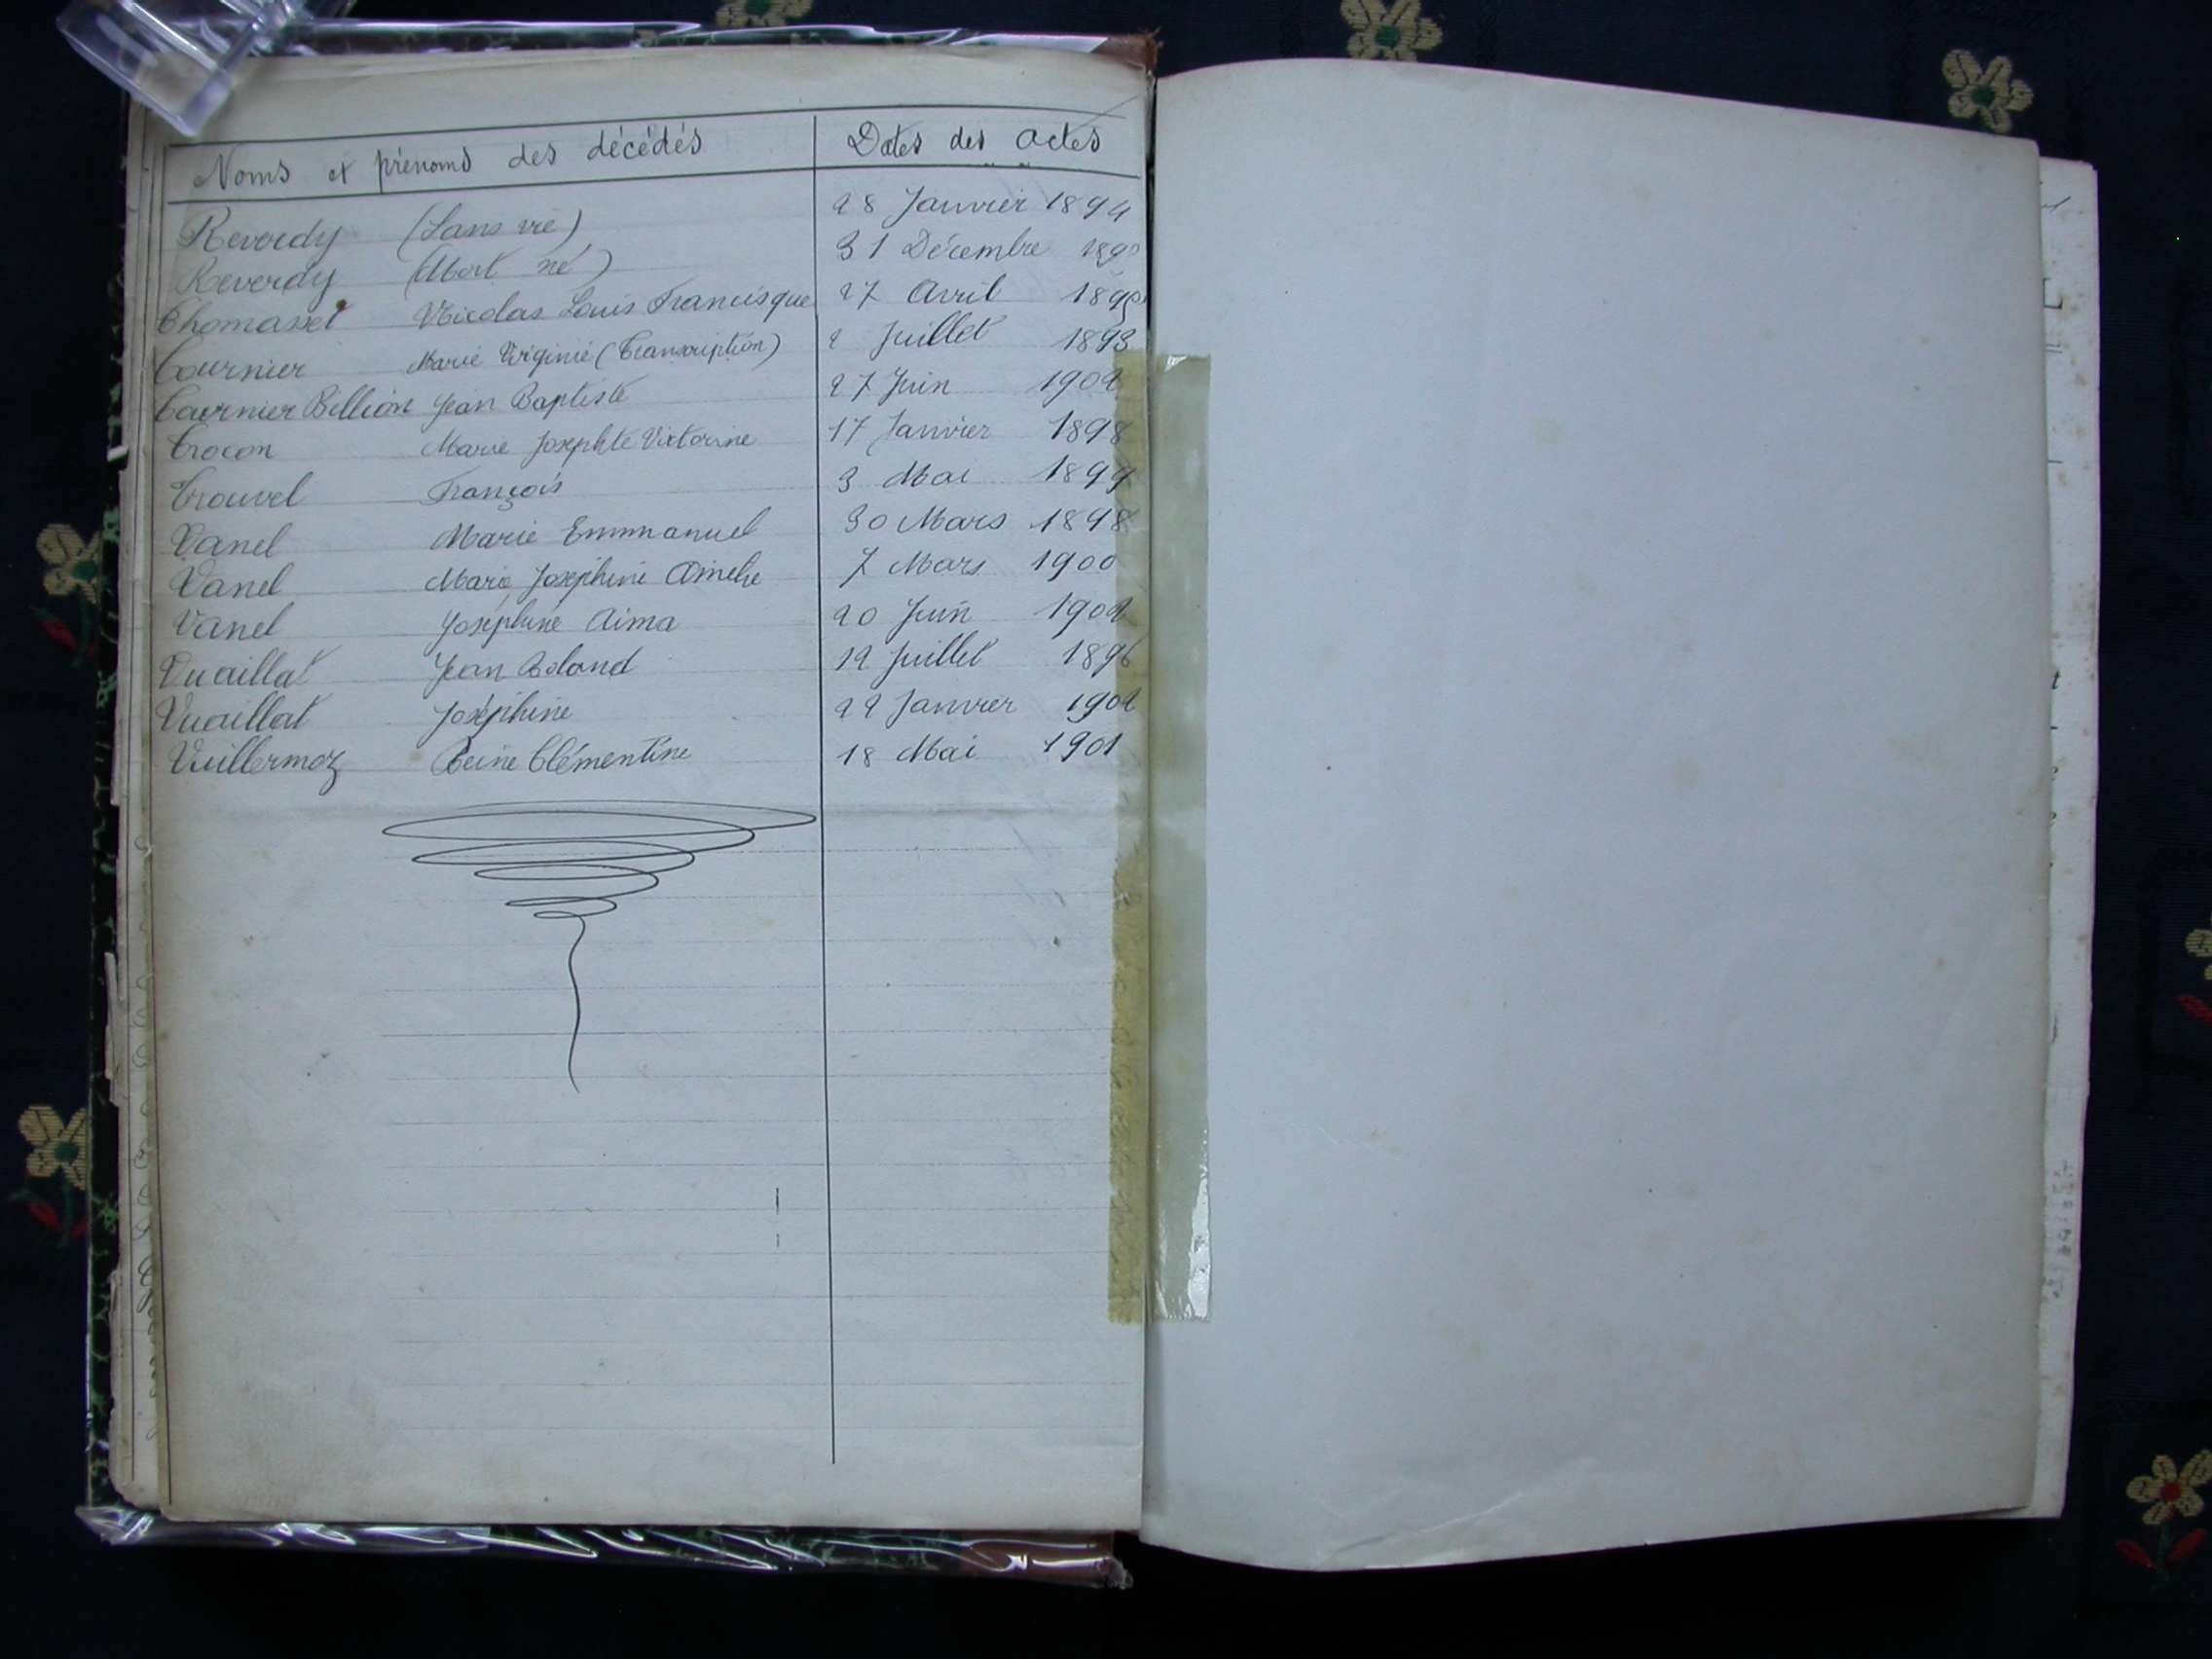 Noms et prénoms des décédés Dates des actes
Reverdy (Sans vie) 28 Janvier 1894
Reverdy (Mort né) 31 Décembre
Thomasset Nicolas Louis Francisque 27 Avril
Tournier Marie Virginie (Transcription) 2 Juillet 1893
Tournier Billion Jean Baptiste 27 Juin 1902
Trocon Marie Josephte Victorine 17 Janvier 1898
Trouvel François 3 Mai 1899
Vanel Marie Emmanuel 30 Mars 1898
Vanel Marie Joséphine Amelie 7 Mars 1900
Vanel Joséphine Aima 20 Juin 1902
Vuaillat Jean Roland 12 Juillet 1896
Vuaillat Joséphine 22 Janvier 1902
Vuillermoz Reine Clémentine 18 Mai 1901